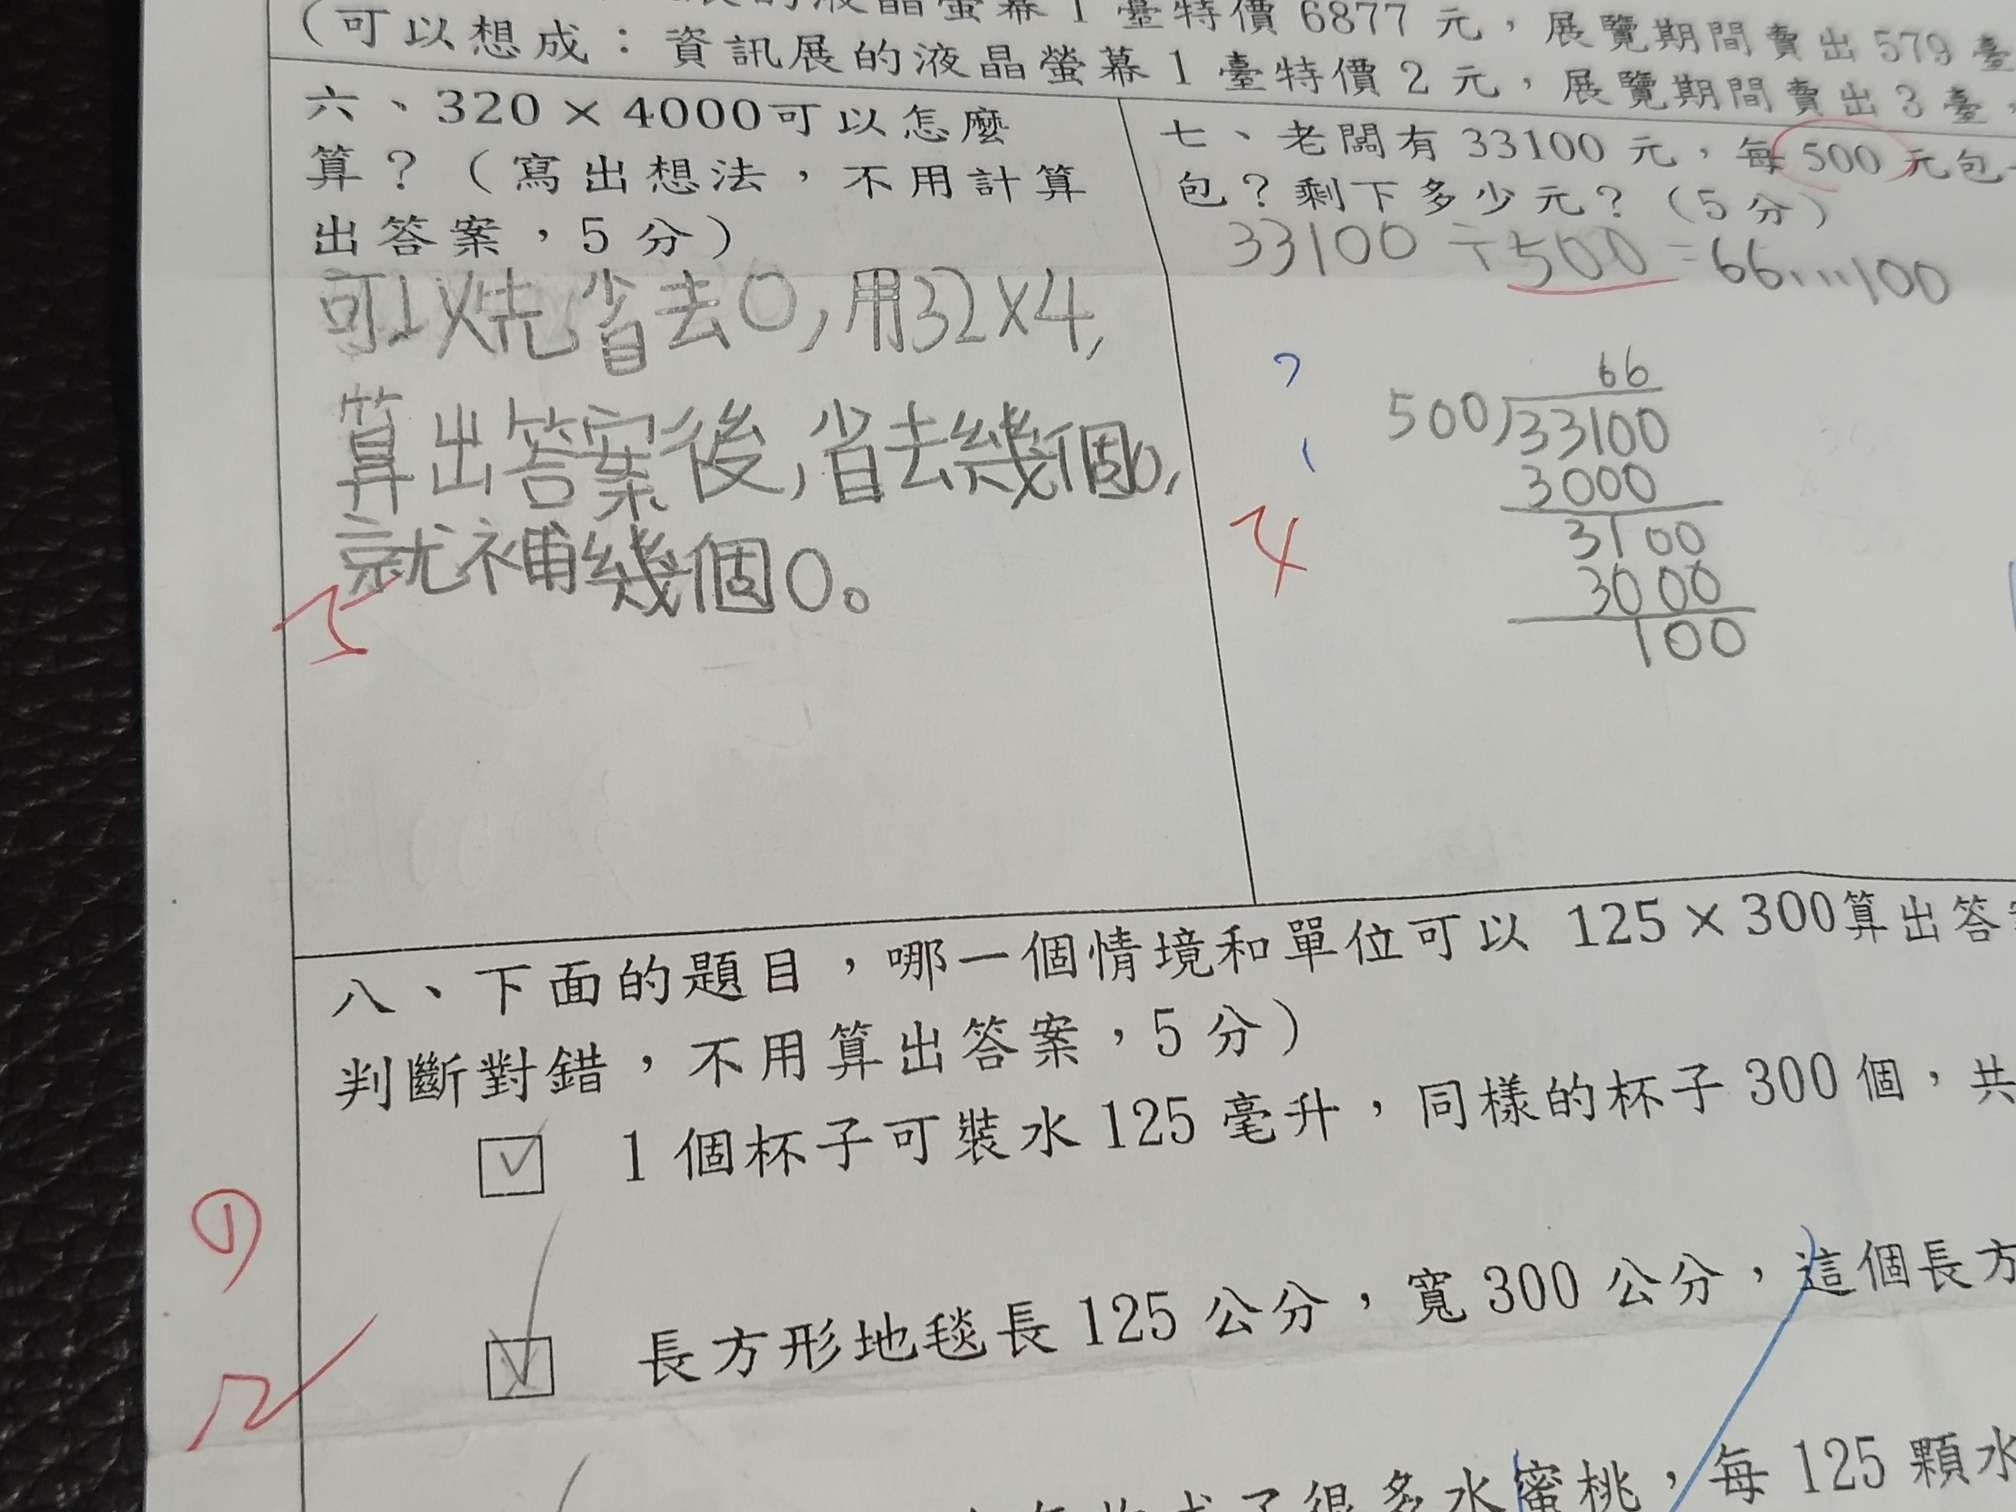 液晶螢幕 1 臺特價 6877 元，展覽期間賣出 579 臺
（可以想成：資訊展的液晶螢幕 1 臺特價 2 元，展覽期間賣出 3 臺，
六、320 × 4000可以怎麼
算？（寫出想法，不用計算
出答案，5 分）
可以先省去0,用32×4,
算出答案後,省去幾個0,
就補幾個0。
5
七、老闆有 33100 元，每 500 元包
包？剩下多少元？（5 分）
33100 ÷ 500 = 66...100
66
500)33100
3000
3100
3000
100
4
八、下面的題目，哪一個情境和單位可以 125 × 300算出答
判斷對錯，不用算出答案，5 分）
1 個杯子可裝水 125 毫升，同樣的杯子 300 個，共
長方形地毯長 125 公分，寬 300 公分，這個長方
很多水蜜桃，每 125 顆水